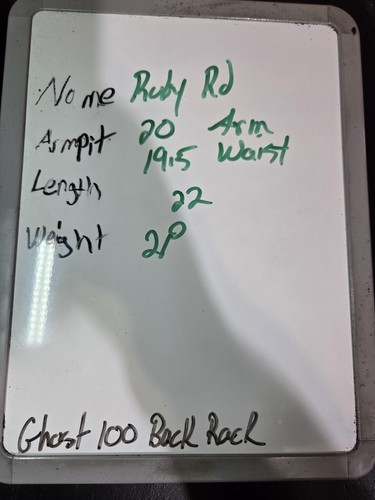 Name Ruby Rd
Armpit 20 Arm
19.5 Waist
Length 22
Weight 2P
Ghost 100 Back Rack